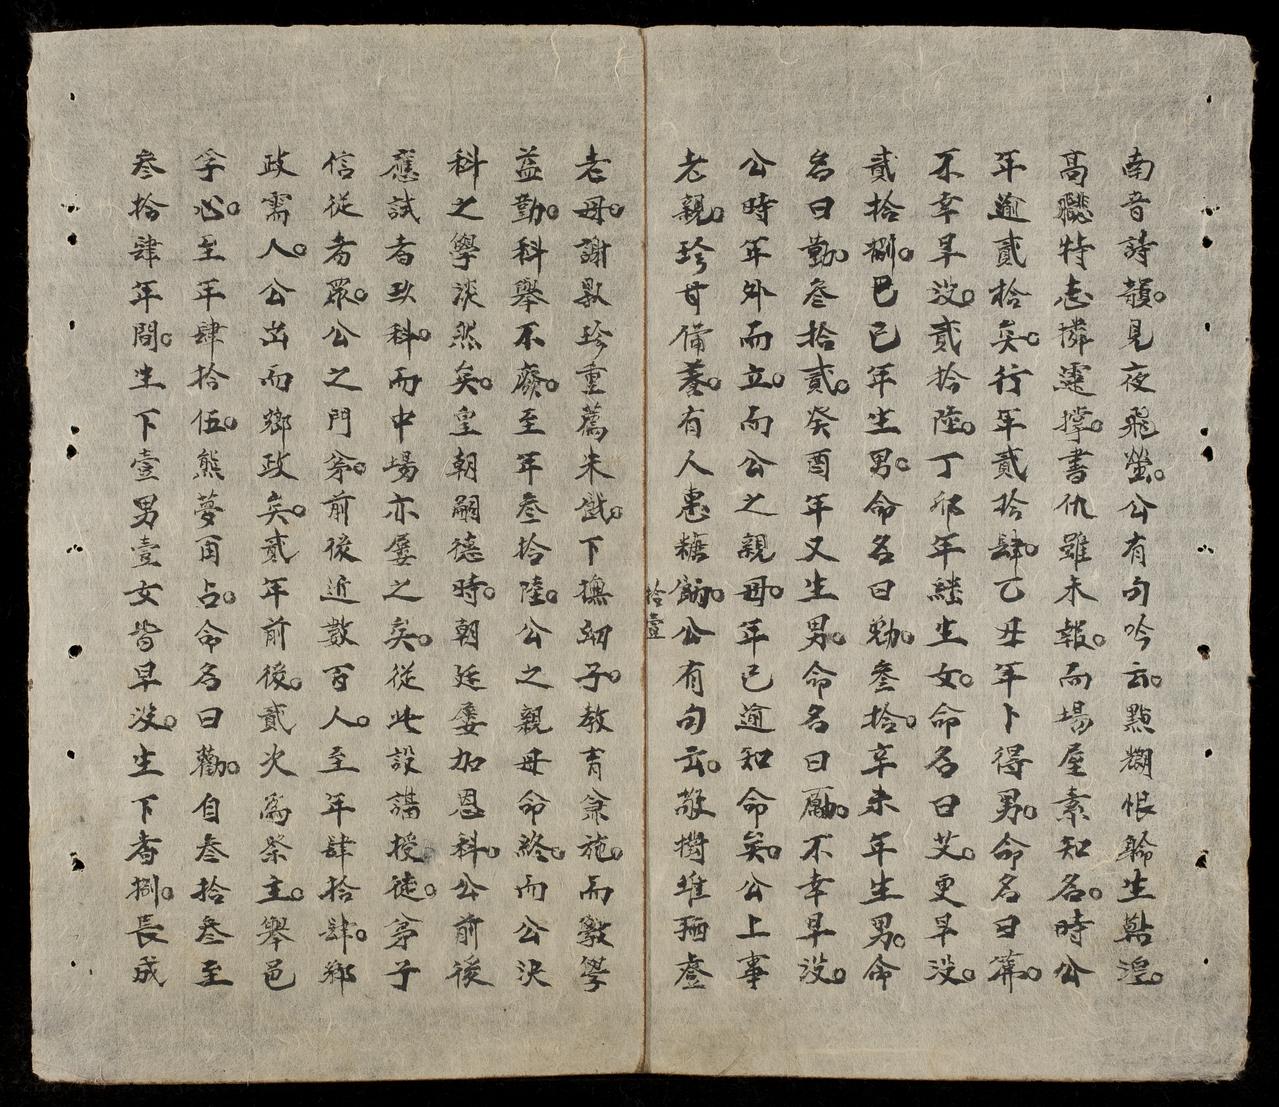 南音詩韻。見夜飛螢。公有句吟云。點糊恨𨊋生𪏭湼。
高聰特志憐靈撑。書仇雖未報。而場屋素知名。時公
年逾貳拾矣。行年貳拾肆。乙丑年卜得男。命名曰第。
不幸早没。貳拾陸。丁卯年継生女。命名曰艾。更早没。
貳拾捌。己巳年生男。命名曰勑。叄拾。辛未年生男。命
名曰勤。叄拾貳。癸酉年又生男。命名曰勵。不幸早没。
公時年外而立。而公之親母。年已逾知命矣。公上事
老親。珍甘備養。有人惠糖。公有句云。敬撙堆𨢇
拾壹
老母。謝恩珍重蔫未戲。下撫幼子。教育兼施。而斆學
益勤。科舉不廢。至年叄拾陸。公之親母命終。而公決
科之學淡然矣。皇朝嗣德時。朝廷屡加恩科。公前後
應試者玖科。而中場亦屡之矣。從此設講授徒。弟子
信從者眾。公之門弟。前後近数百人。至年肆拾肆。鄉
政需人。公出而鄉政矣。貳年前後。貳次為祭主。舉邑
孚心。至年肆拾伍。熊夢再占。命名曰勸。自叄拾叄至
叄拾肆年間。生下壹男壹女皆早没。生下者捌。長成